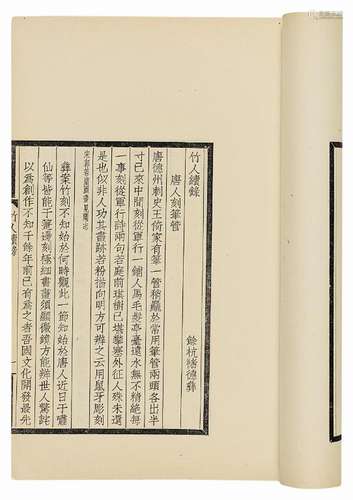 竹人續錄
餘杭褚德彝
唐人刻筆管
唐德州刺史王倚家有筆一管稍麤於常用筆管兩頭各出半
寸已來中間刻從軍行一鋪人馬毛髮亭臺遠水無不精絕每
一事刻從軍行詩兩句若庭前琪樹已堪攀塞外征人殊未還
是也似非人功其畫跡若粉描向明方可辨之云用鼠牙彫刻
宋郭若虛圖畫見聞志
彝案竹刻不知始於何時觀此一節知始於唐人近日于嘯
仙等皆能于箑邊刻極細書畫須顯微鏡方能辨世人驚詫
以為創作不知千餘年前已有為之者吾國文化開發最先
竹人續錄